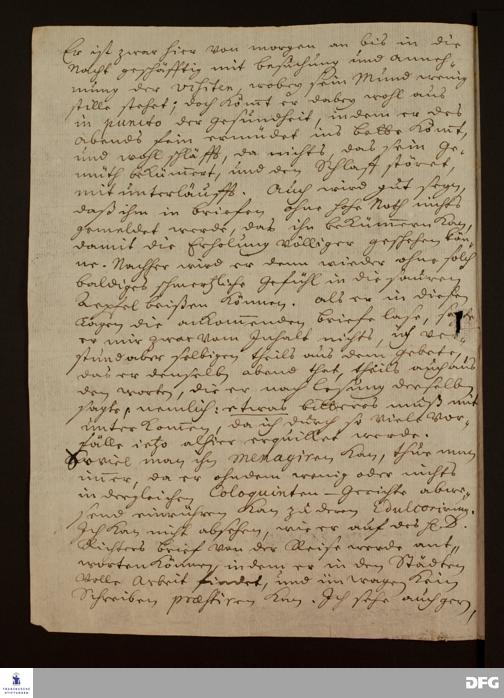 Er ist zwar hier von morgen an bis in die
Nacht geschäfftig mit besuchung und anneh-
mung der visiten, wobey sein Mund wenig
stille stehet; doch kömt er dabey wohl aus
in puncto der gesundheit, indem er des
abends fein ermüdet ins bette kömt,
und wohl schläfft, da nichts, das sein ge-
müth bekümmert, und den Schlaff störet,
mit unterläufft. Auch wird gut seyn,
daß ihm in briefen ohne hohe Noth nichts
gemeldet werde, das ihn bekümmern kan,
damit die Erholung völliger geschehen kön-
ne. Nachher wird er denn wieder ohne solch
baldiges schmertzliche gefühl in die sauren
Aepfel beißen können. Als er in diesen
tagen die ankommenden briefe lase, sagte
er mir zwar vom Inhalt nichts, ich ver-
stund aber selbigen theils aus dem gebete,
das er denselben abend that, theils auch aus
den worten, die er nach lesung derselben
sagte, nemlich: etwas bitteres muß mit
unter kommen, da ich durch so viele Vor-
fälle ietzo alhier erquicket werde.
So viel man ihn menagiren kan, thue man
immer, da er ohndem wenig oder nichts
in dergleichen Coloquinten-Gerichte abwe-
send einrühren kan zu deren Edulcorirung.
Ich kan nicht absehen, wie er auf des H. D.
Richters brief von der Reise werde ant-
worten können, indem er in den Städten
volle arbeit findet, und im wagen kein
Schreiben præstiren kan. Ich sehe auch gern,
FRANCKESCHE
STIFTUNGEN
DFG